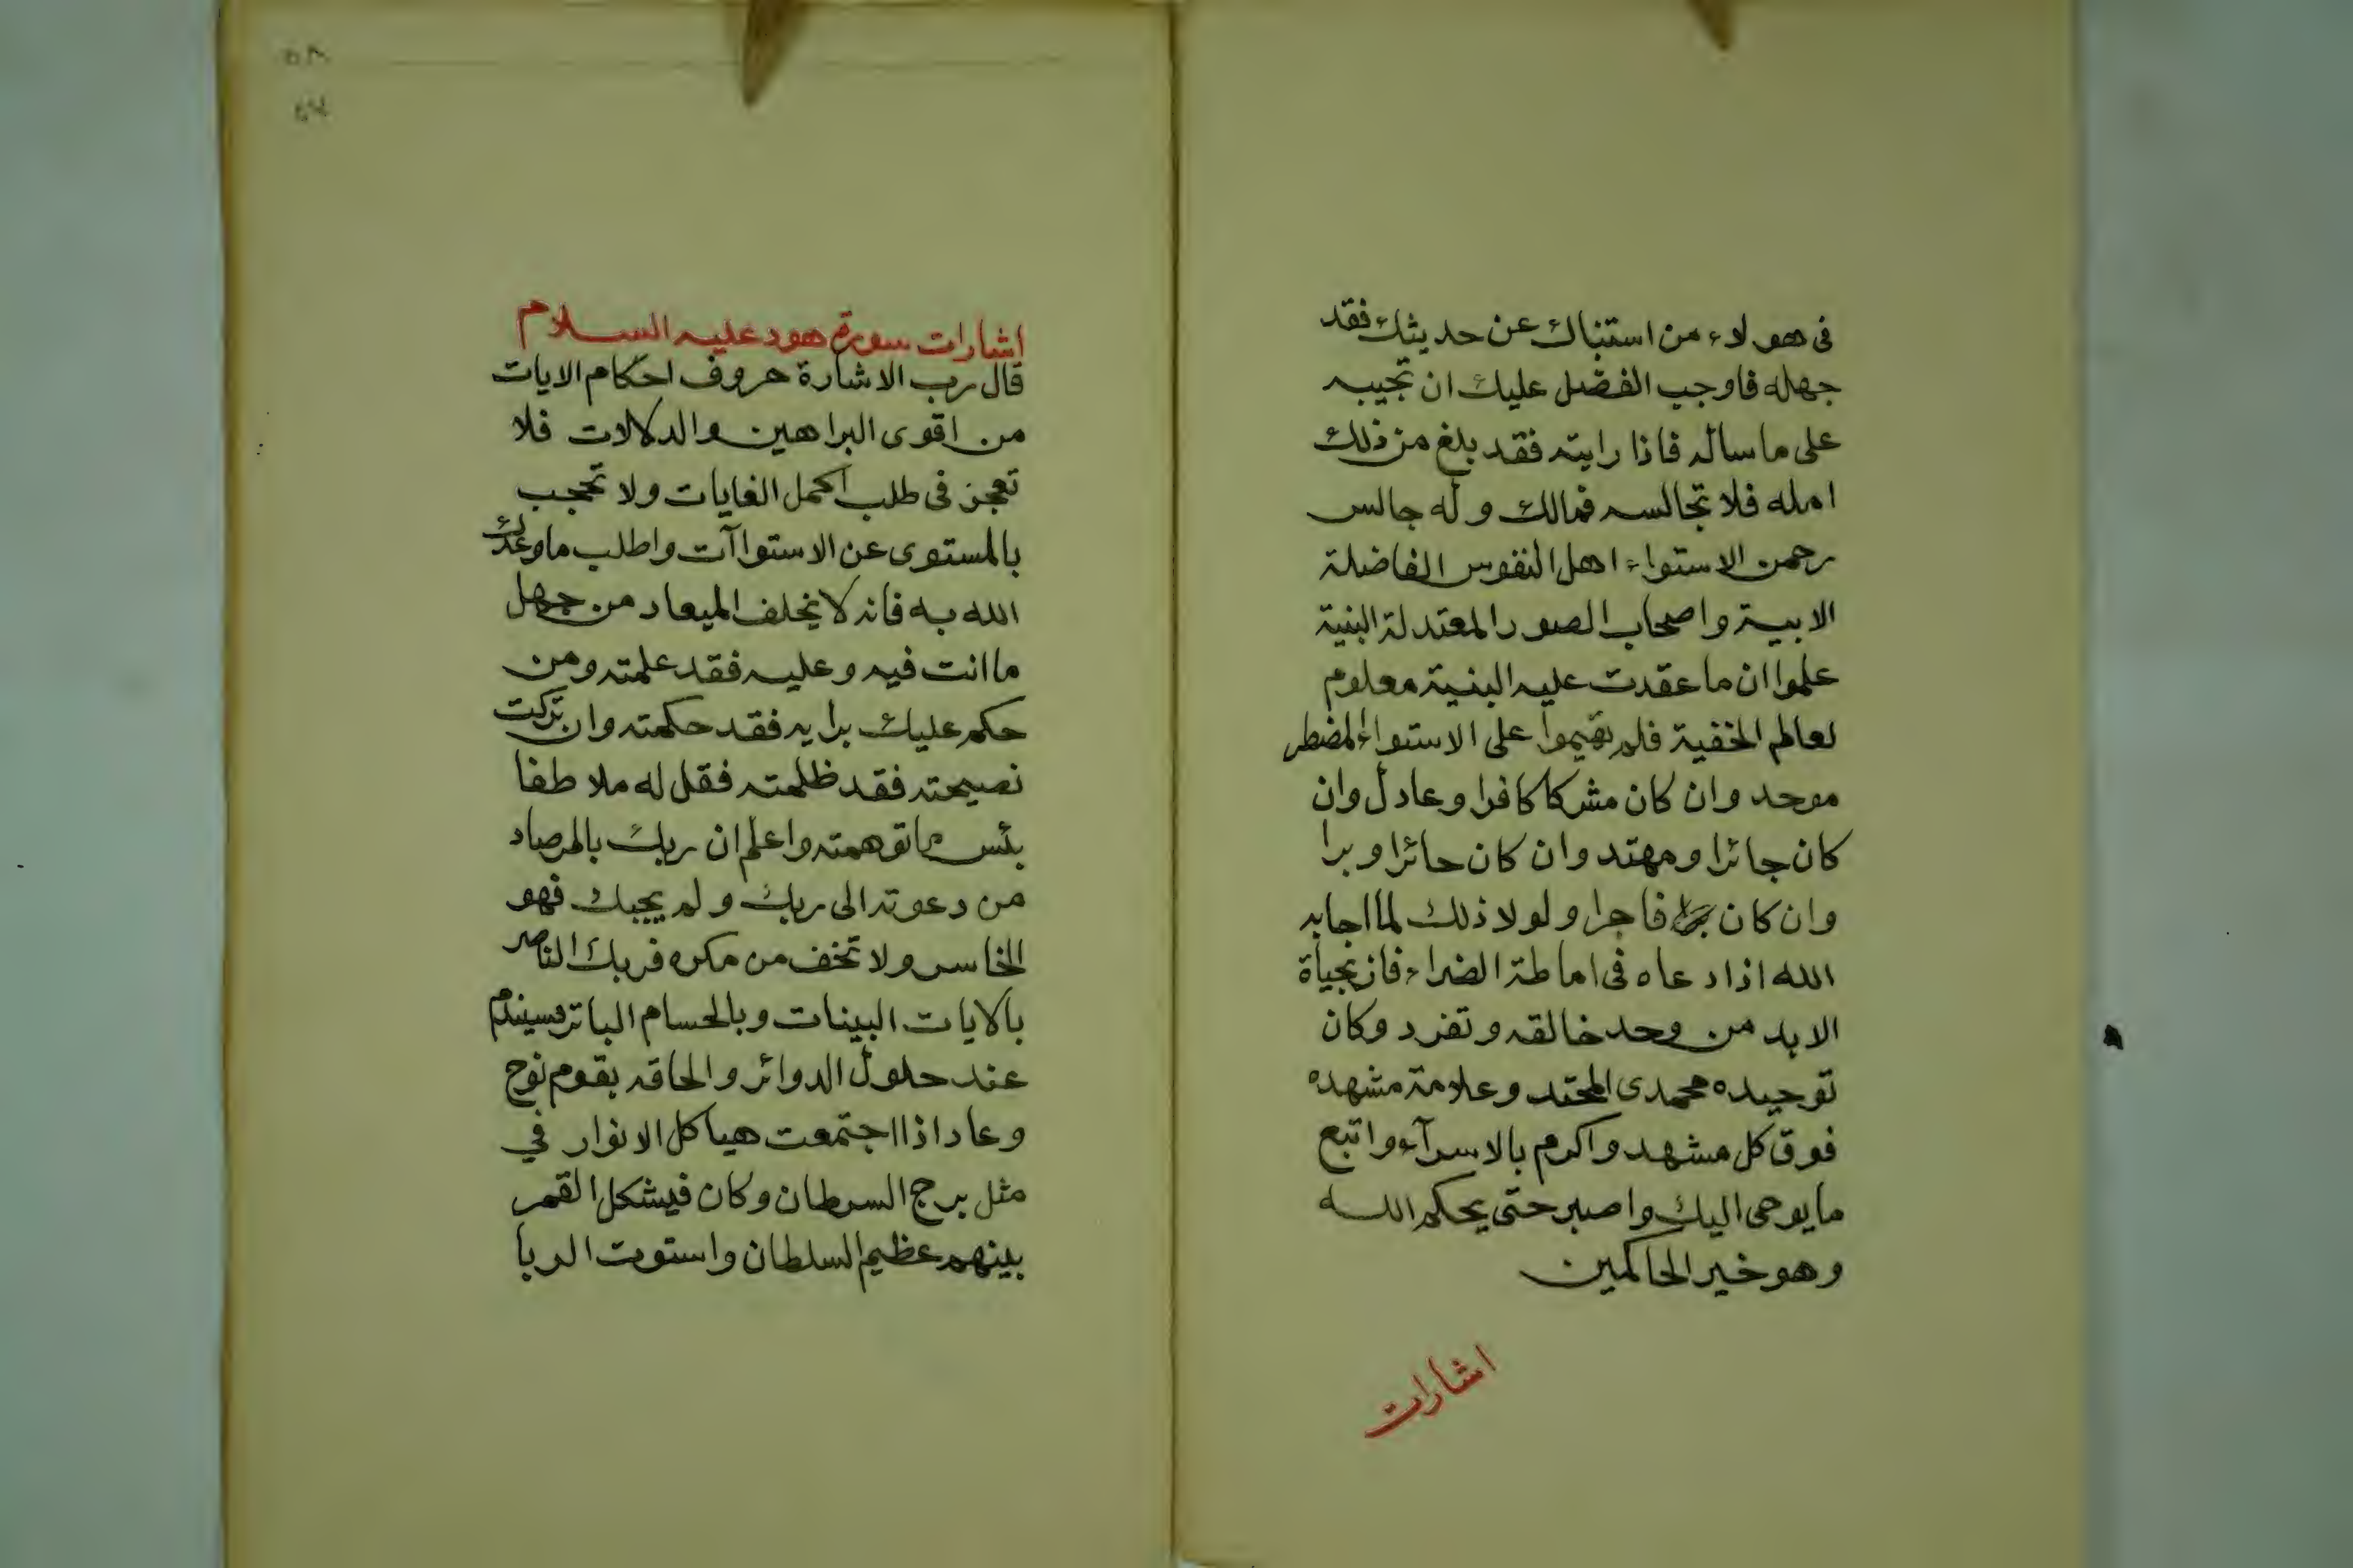 فى هولاء من استنباك عن حديثك فقد
جهله فاوجب الفضل عليك ان تجيبه
على ما ساله فاذا رايته فقد بلغ من ذلك
امله فلا تجالسه فمالك وله جالس
رحمن الاستواء اهل النفوس الفاضلة
الابية واصحاب الصور المعتدلة البنية
علموا ان ما عقدت عليه البنية معلوم
لعالم الخفية فلم يقيموا على الاستواء المضطر
موحد وان كان مشركا كافرا وعادل وان
كان جائرا ومهتد وان كان حائرا وبرا
وان كان فاجرا ولولا ذلك لما اجابه
الله اذا دعاه فى اماطة الضراء فاز بحياة
الابد من وحد خالقه وتفرد وكان
توحيده محمدى المحتد وعلامة مشهده
فوق كل مشهد واكرم بالاسرآء واتبع
ما يوحى اليك واصبر حتى يحكم الله
وهو خير الحاكمين
اشارات
اشارات سورة هود عليه السلام
قال رب الاشارة حروف احكام الايات
من اقوى البراهين والدلالات فلا
تعجز فى طلب اكمل الغايات ولا تحجب
بالمستوى عن الاستواآت واطلب ما وعدك
الله به فانه لا يخلف الميعاد من جهل
ما انت فيه وعليه فقد علمته ومن
حكم عليك برايه فقد حكمته وان تركت
نصيحته فقد ظلمته فقل له ملاطفا
بئس ما توهمته واعلم ان ربك بالمرصاد
من دعوته الى ربك ولم يجبك فهو
الخاسر ولا تخف من مكره فربك الناصر
بالايات البينات وبالحسام الباتر فسيندم
عند حلول الدوائر والحاقه بقوم نوح
وعاد اذا اجتمعت هياكل الانوار في
مثل برج السرطان وكان فيشكل القمر
بينهم عظيم السلطان واستوت الربا